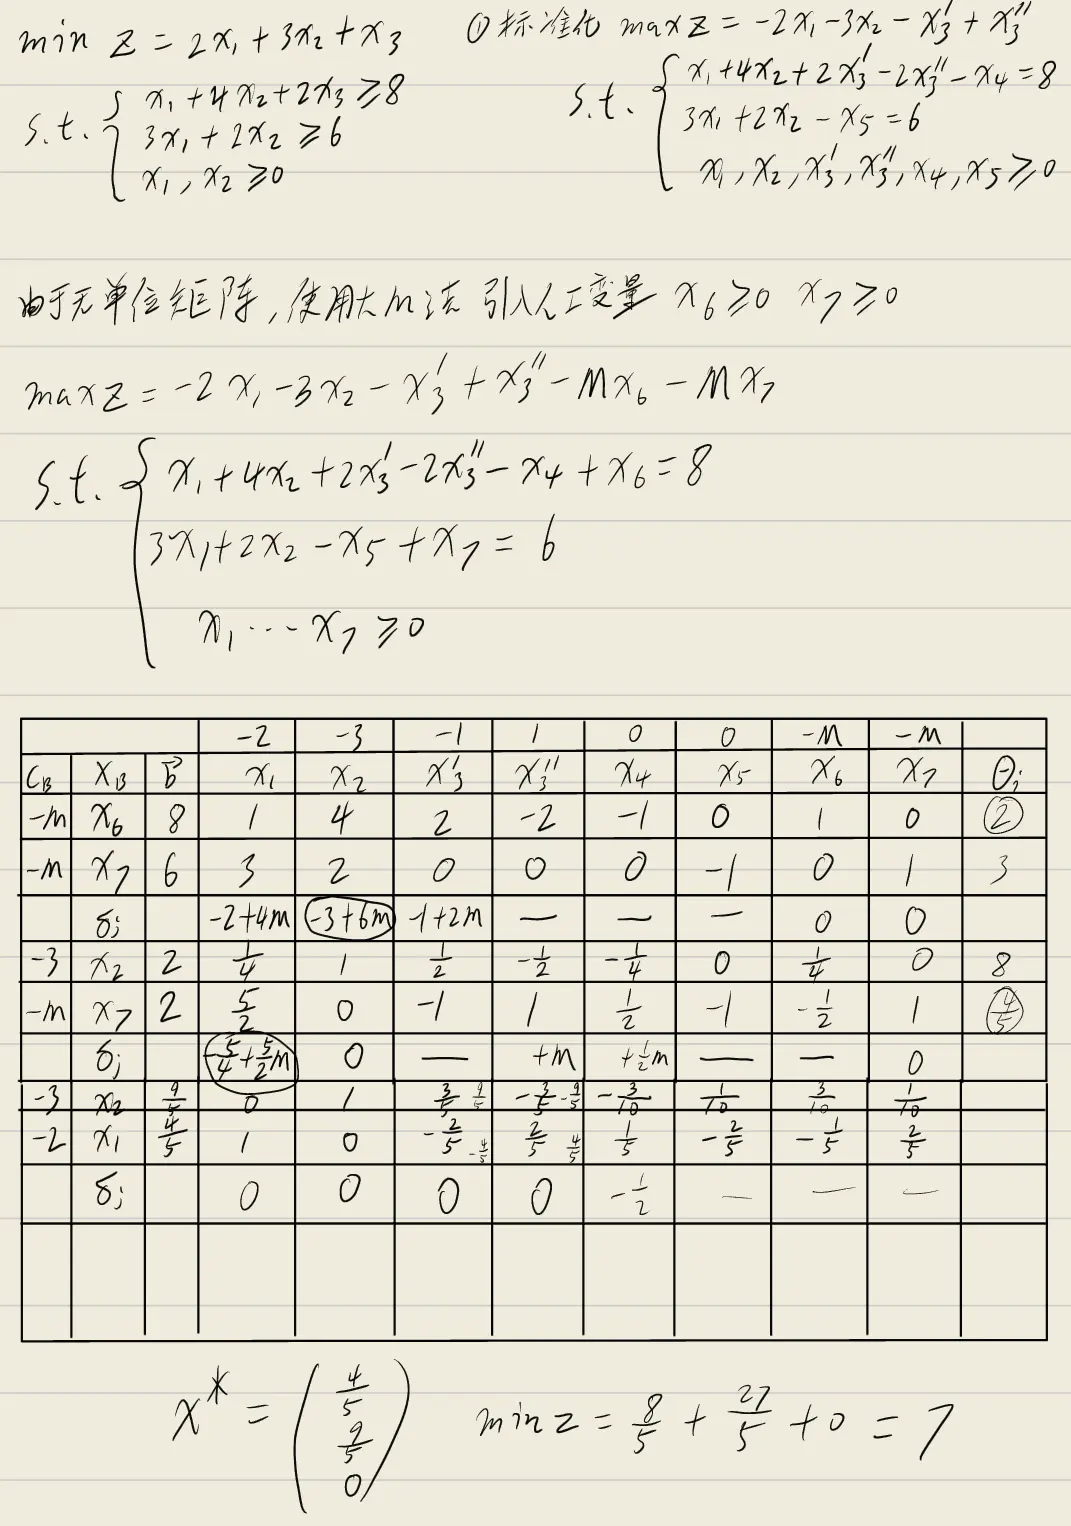 min z = 2x₁ + 3x₂ + x₃
s.t. { x₁ + 4x₂ + 2x₃ ≥ 8
3x₁ + 2x₂ ≥ 6
x₁, x₂ ≥ 0
① 标准化 max z = -2x₁ - 3x₂ - x₃' + x₃''
s.t. { x₁ + 4x₂ + 2x₃' - 2x₃'' - x₄ = 8
3x₁ + 2x₂ - x₅ = 6
x₁, x₂, x₃', x₃'', x₄, x₅ ≥ 0
由于无单位矩阵, 使用大M法 引入人工变量 x₆ ≥ 0 x₇ ≥ 0
max z = -2x₁ - 3x₂ - x₃' + x₃'' - Mx₆ - Mx₇
s.t. { x₁ + 4x₂ + 2x₃' - 2x₃'' - x₄ + x₆ = 8
3x₁ + 2x₂ - x₅ + x₇ = 6
x₁ ... x₇ ≥ 0
-2 -3 -1 1 0 0 -M -M
C_B X_B b⃗ x₁ x₂ x₃' x₃'' x₄ x₅ x₆ x₇ θᵢ
-M x₆ 8 1 4 2 -2 -1 0 1 0 ②
-M x₇ 6 3 2 0 0 0 -1 0 1 3
δⱼ -2+4M -3+6M -1+2M — — — 0 0
-3 x₂ 2 1/4 1 1/2 -1/2 -1/4 0 1/4 0 8
-M x₇ 2 5/2 0 -1 1 1/2 -1 -1/2 1 4/5
δⱼ -5/4+5/2M 0 — +M +1/2M — — 0
-3 x₂ 9/5 0 1 3/5 9/5 -3/5 -9/5 -3/10 1/10 3/10 1/10
-2 x₁ 4/5 1 0 -2/5 -4/5 2/5 4/5 1/5 -2/5 -1/5 2/5
δⱼ 0 0 0 0 -1/2 — — —
x* = (4/5 9/5 0) min z = 8/5 + 27/5 + 0 = 7